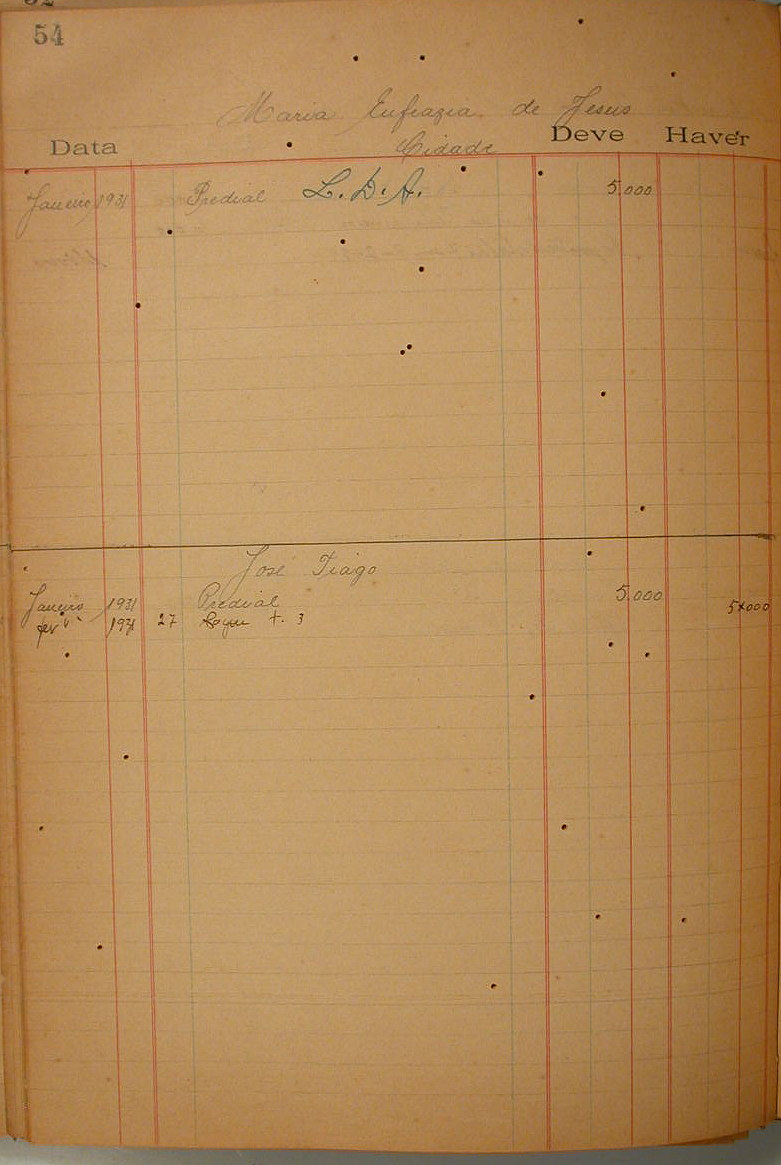 54
Maria Eufrazia de Jesus
Data Cidade Deve Haver
Janeiro 1931 Predial L. D. A. 5.000
José Tiago
Janeiro 1931 Predial 5.000
fevº 1931 27 t. 3 5$000